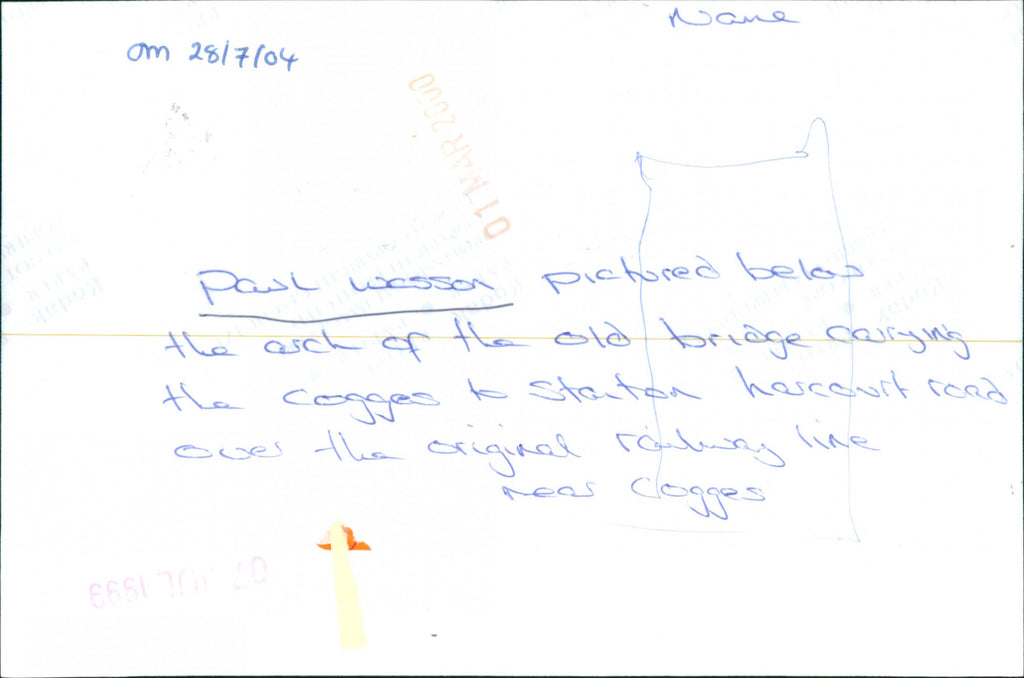 Name
om 28/7/04
01 MAR 2000
Paul Wesson pictured below
the arch of the old bridge carrying
the Cogges to Stanton Harcourt road
over the original railway line
near Cogges
07 JUL 1999